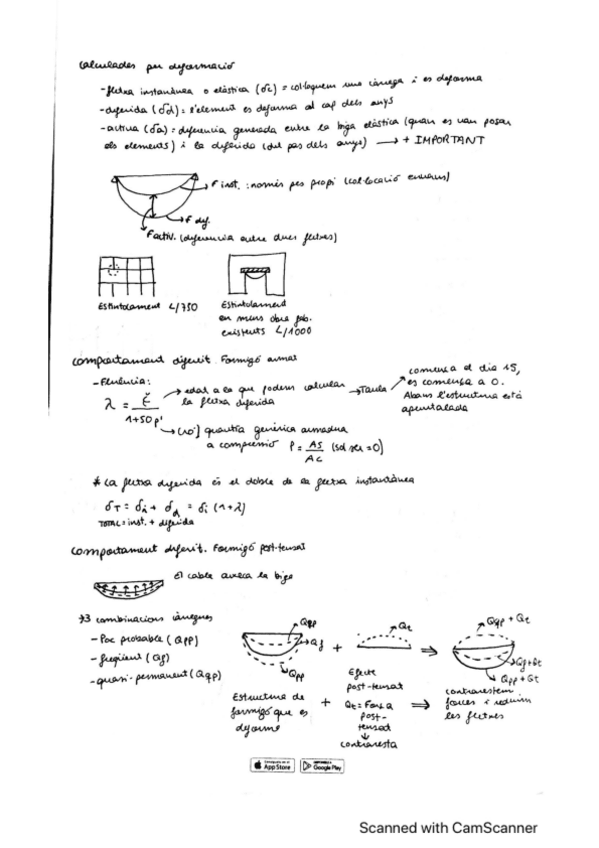 Calculades per deformació
-fletxa instantània o elàstica (δe) = col·loquem una càrrega i es deforma
-diferida (δd) = l'element es deforma al cap dels anys
-activa (δa) = diferència generada entre la biga elàstica (quan es van posar
els elements) i la diferida (del pas dels anys) → + IMPORTANT
F inst. : només pes propi (col·locació envans)
F dif.
Factiv. (diferència entre dues fletxes)
Estintolament L/750
Estintolament
en murs obra fab.
existents L/1000
comportament diferit. Formigó armat
-Fluència:
λ = ξ / 1+50ρ'
→ edat a la que podem calcular
la fletxa diferida
→ Taula
comença el dia 15,
es comença a 0.
Abans l'estructura està
apuntalada
→ (ρ') quantia genèrica armadura
a compressió ρ = As / Ac (sol ser = 0)
* La fletxa diferida és el doble de la fletxa instantània
δT = δi + δd = δi (1+λ)
TOTAL = inst. + diferida
comportament diferit. Formigó post-tensat
El cable aixeca la biga
→3 combinacions càrregues
- Poc probable (Qpp)
- freqüent (Qf)
- quasi-permanent (Qqp)
Qqp
Qf
Qpp
+
Qt
⇒
Qqp + Qt
Qf+Qt
Qpp + Qt
Estructura de
formigó que es
deforma
+
Efecte
post-tensat
Qt = Força
post-
tensat
↓
contraresta
⇒
contrarestem
forces i reduïm
les fletxes
App Store
Google Play
Scanned with CamScanner